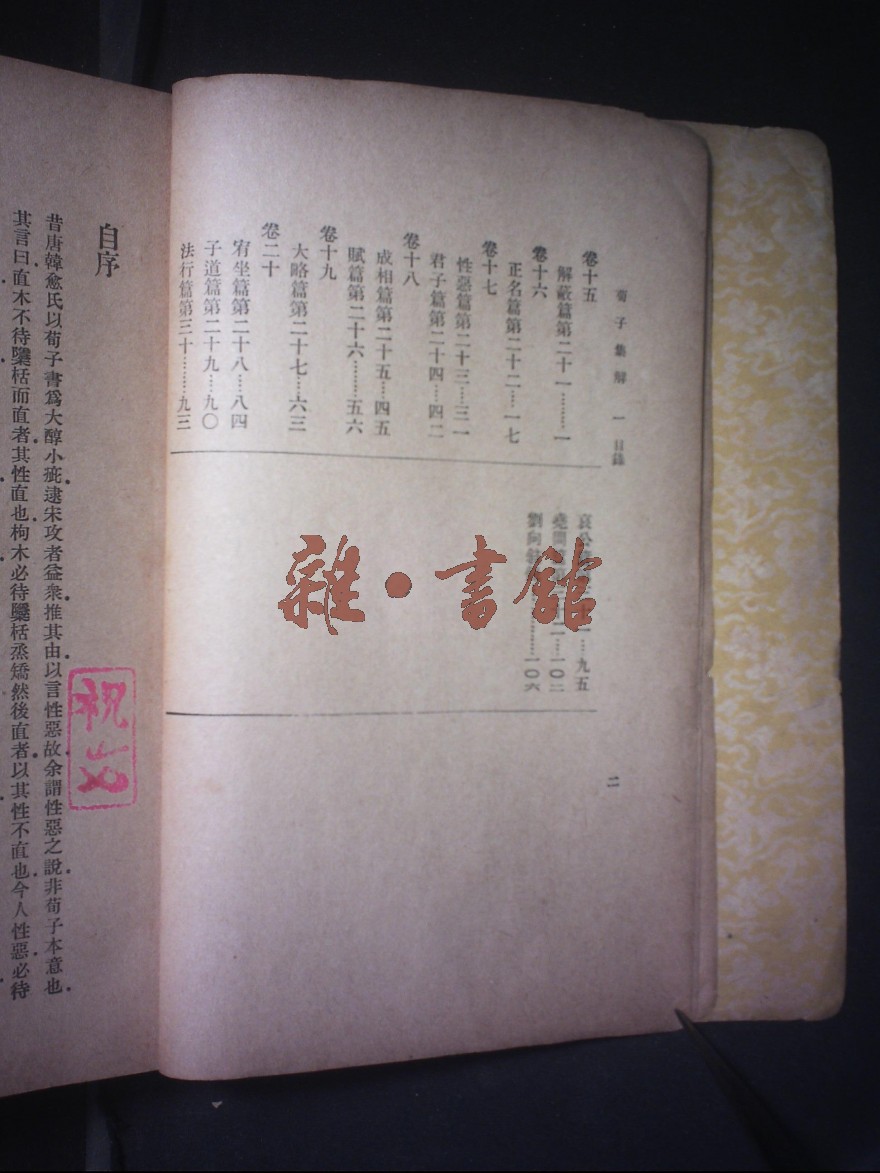 荀子集解 一 目錄
卷十五
解蔽篇第二十一………一
卷十六
正名篇第二十二…一七
卷十七
性惡篇第二十三…三一
君子篇第二十四…四二
卷十八
成相篇第二十五…四五
賦篇第二十六………五六
卷十九
大略篇第二十七…六三
卷二十
宥坐篇第二十八…八四
子道篇第二十九…九〇
法行篇第三十………九三
哀公 …九五
堯問 二…一〇二
劉向 ………一〇六
二
雜·書館
自序
昔唐韓愈氏以荀子書爲大醇小疵逮宋攻者益衆推其由以言性惡故余謂性惡之說非荀子本意也
其言曰直木不待檃栝而直者其性直也枸木必待檃栝烝矯然後直者以其性不直也今人性惡必待